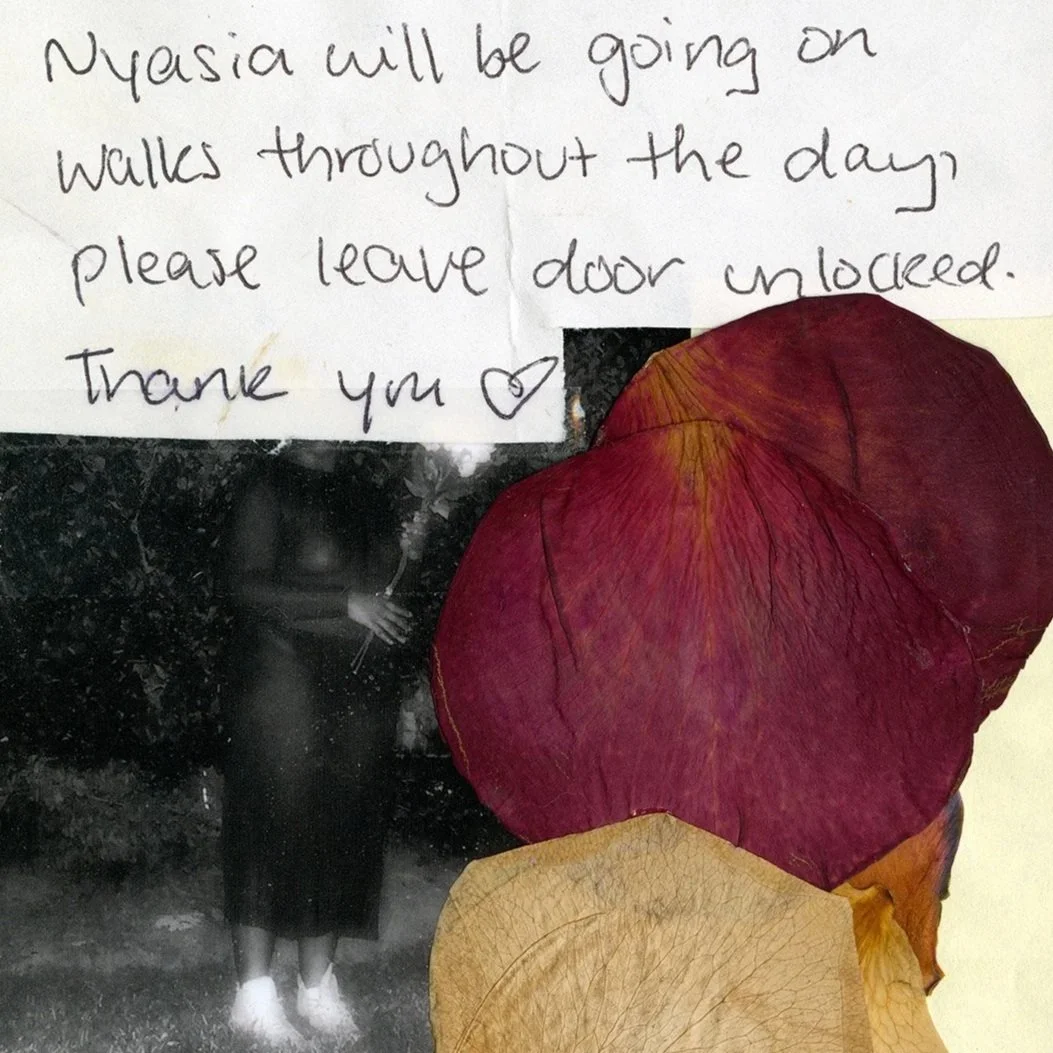 Nyasia will be going on
walks throughout the day,
please leave door unlocked.
Thank you ♡